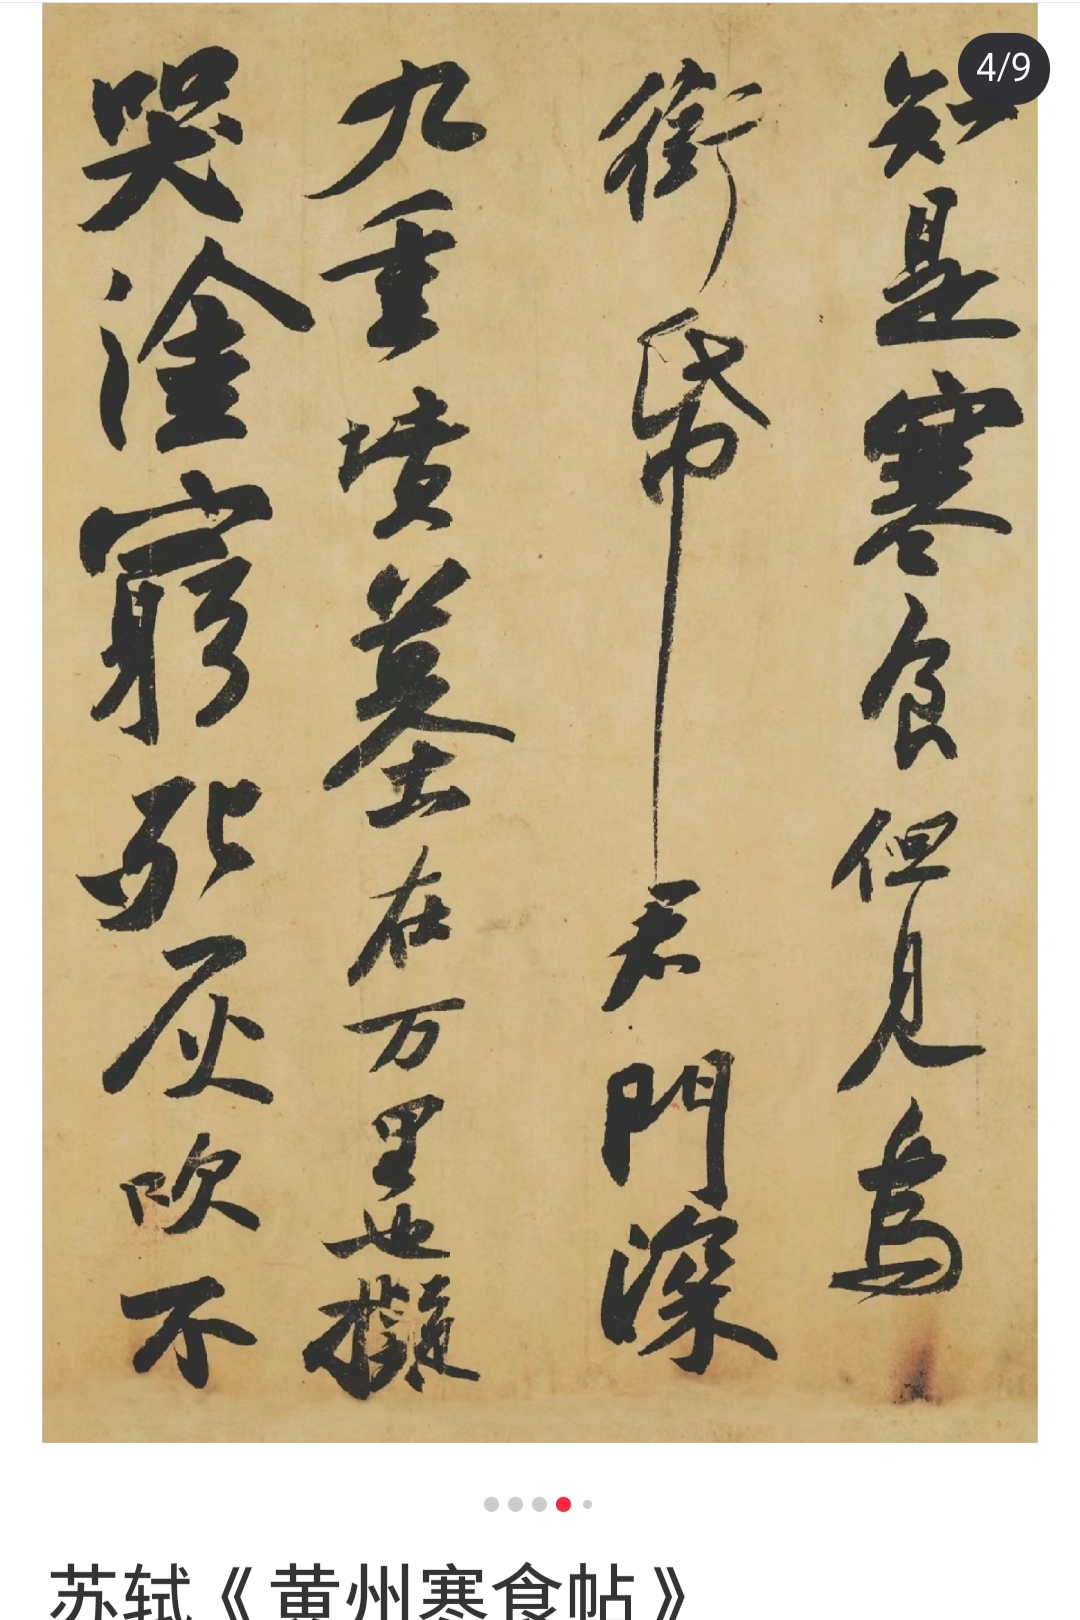 4/9
知是寒食但見烏
銜帋君門深
九重墳墓在万里也擬
哭塗窮死灰吹不
苏轼《黄州寒食帖》